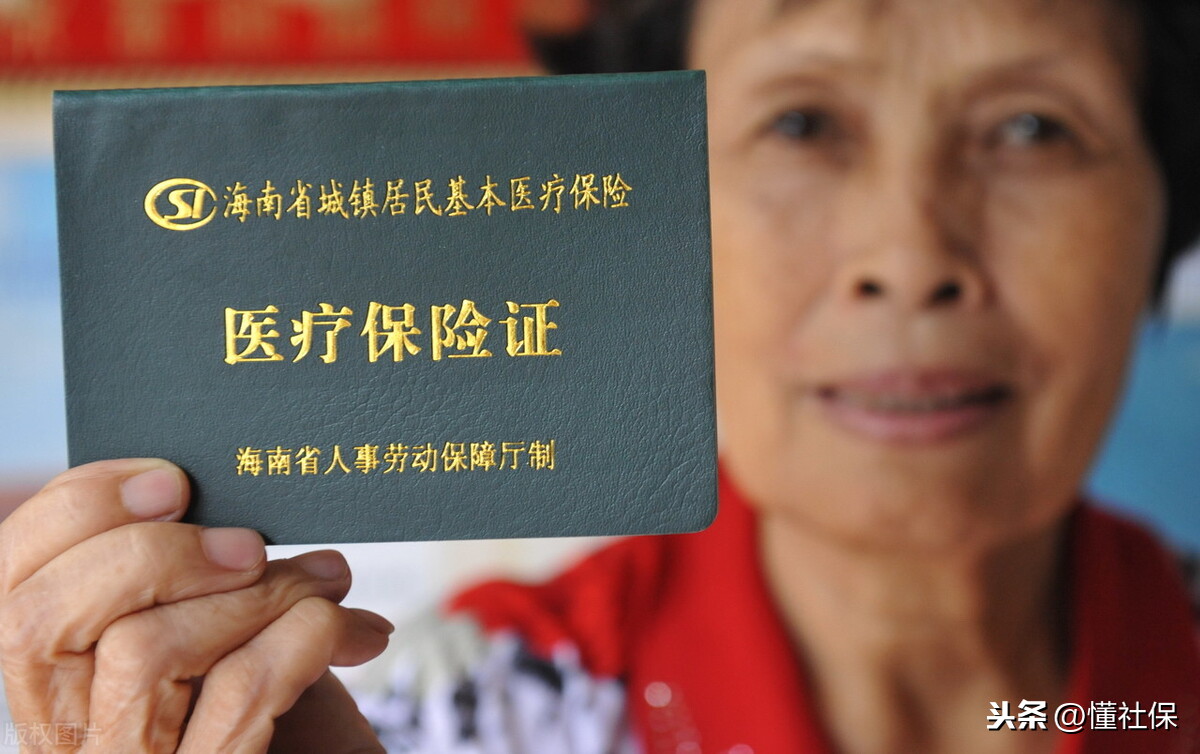 SI 海南省城镇居民基本医疗保险
医疗保险证
海南省人事劳动保障厅制
版权图片
头条 @懂社保